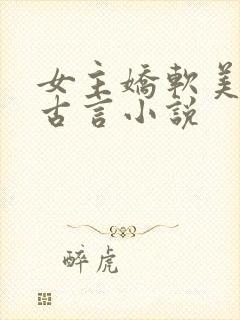 女主嬌軟美
古言小說
醉虎